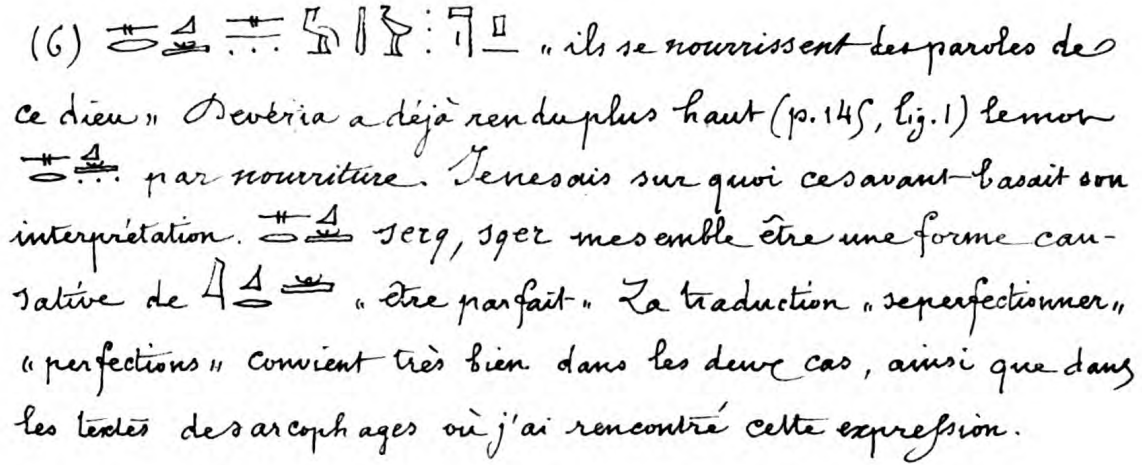 (6) „ ils se nourrissent des paroles de
ce dieu „ Devéria a déjà rendu plus haut (p. 145, lig. 1) le mot
par nourriture. Je ne sais sur quoi ce savant basait son
interprétation. serq, sqer me semble être une forme cau-
sative de „ être parfait „ La traduction „ se perfectionner „
„ perfections „ convient très bien dans les deux cas, ainsi que dans
les textes de sarcophages où j'ai rencontré cette expression.